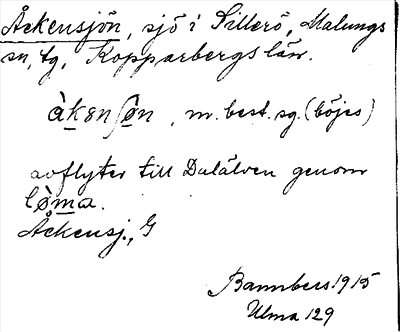 Åckensjön, sjö i Lillerö, Malungs
sn, tg, Kopparbergs län.
àkɛnʃön, m. best. sg. (böjes)
avflyter till Dalälven genom
lòma.
Åckensj., G
Bannbers 1915
Ulma 129